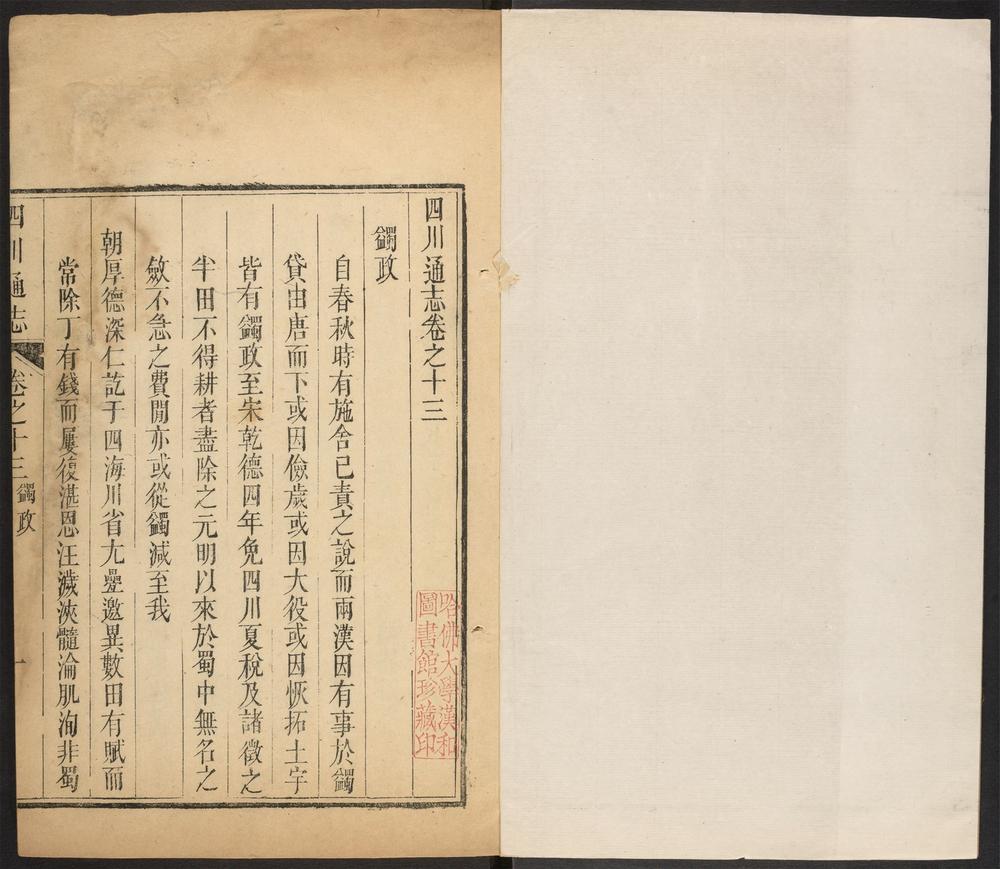 四川通志卷之十三
蠲政
自春秋時有施舍已責之說而兩漢因有事於蠲
貸由唐而下或因儉歲或因大役或因恢拓土宇
皆有蠲政至宋乾德四年免四川夏稅及諸徵之
半田不得耕者盡除之元明以來於蜀中無名之
斂不急之費閒亦或從蠲減至我
朝厚德深仁訖于四海川省尢疊邀異數田有賦而
常除丁有錢而屢復湛恩汪濊浹髓淪肌洵非蜀
四川通志 卷之十三 蠲政 一
哈佛大學漢和
圖書館珍藏印